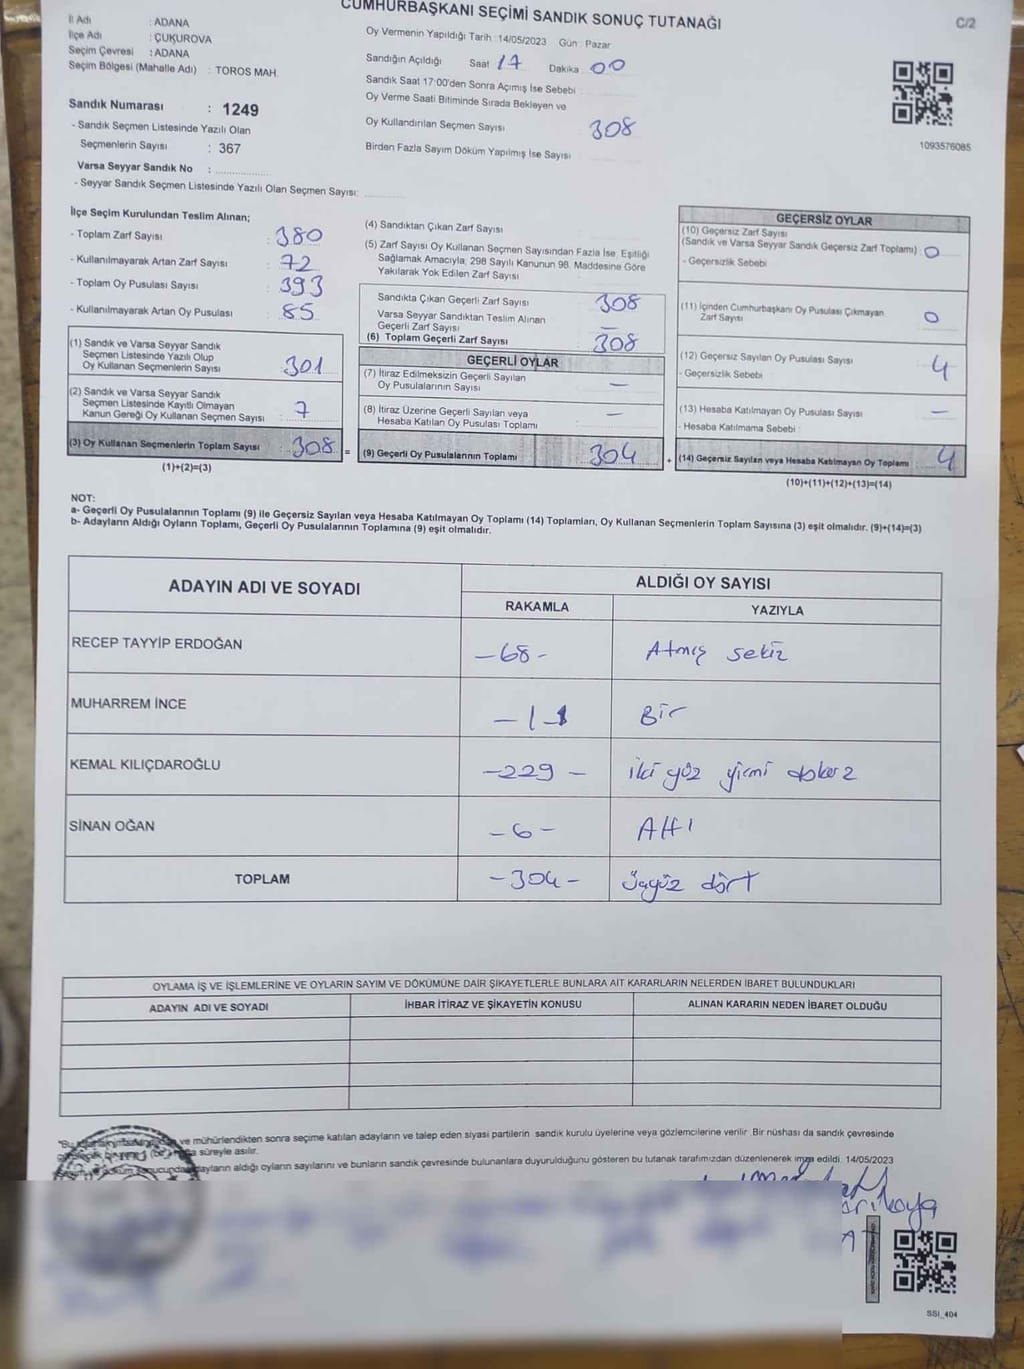 CUMHURBAŞKANI SEÇİMİ SANDIK SONUÇ TUTANAĞI
C/2
İl Adı : ADANA
İlçe Adı : ÇUKUROVA
Seçim Çevresi : ADANA
Seçim Bölgesi (Mahalle Adı) : TOROS MAH.
Sandık Numarası : 1249
- Sandık Seçmen Listesinde Yazılı Olan
Seçmenlerin Sayısı : 367
Varsa Seyyar Sandık No :
- Seyyar Sandık Seçmen Listesinde Yazılı Olan Seçmen Sayısı:
Oy Vermenin Yapıldığı Tarih :14/05/2023 Gün : Pazar
Sandığın Açıldığı Saat 17 Dakika 00
Sandık Saat 17:00'den Sonra Açımış İse Sebebi
Oy Verme Saati Bitiminde Sırada Bekleyen ve
Oy Kullandırılan Seçmen Sayısı 308
Birden Fazla Sayım Döküm Yapılmış İse Sayısı
1093576085
İlçe Seçim Kurulundan Teslim Alınan;
- Toplam Zarf Sayısı : 380
- Kullanılmayarak Artan Zarf Sayısı : 72
- Toplam Oy Pusulası Sayısı : 393
- Kullanılmayarak Artan Oy Pusulası : 85
(1) Sandık ve Varsa Seyyar Sandık
Seçmen Listesinde Yazılı Olup
Oy Kullanan Seçmenlerin Sayısı : 301
(2) Sandık ve Varsa Seyyar Sandık
Seçmen Listesinde Kayıtlı Olmayan
Kanun Gereği Oy Kullanan Seçmen Sayısı : 7
(3) Oy Kullanan Seçmenlerin Toplam Sayısı : 308 =
(1)+(2)=(3)
(4) Sandıktan Çıkan Zarf Sayısı
(5) Zarf Sayısı Oy Kullanan Seçmen Sayısından Fazla İse, Eşitliği
Sağlamak Amacıyla, 298 Sayılı Kanunun 98. Maddesine Göre
Yakılarak Yok Edilen Zarf Sayısı
Sandıkta Çıkan Geçerli Zarf Sayısı 308
Varsa Seyyar Sandıktan Teslim Alınan
Geçerli Zarf Sayısı —
(6) Toplam Geçerli Zarf Sayısı 308
GEÇERLİ OYLAR
(7) İtiraz Edilmeksizin Geçerli Sayılan
Oy Pusulalarının Sayısı —
(8) İtiraz Üzerine Geçerli Sayılan veya
Hesaba Katılan Oy Pusulası Toplamı —
(9) Geçerli Oy Pusulalarının Toplamı 304 +
GEÇERSİZ OYLAR
(10) Geçersiz Zarf Sayısı
(Sandık ve Varsa Seyyar Sandık Geçersiz Zarf Toplamı) : 0
- Geçersizlik Sebebi
(11) İçinden Cumhurbaşkanı Oy Pusulası Çıkmayan
Zarf Sayısı 0
(12) Geçersiz Sayılan Oy Pusulası Sayısı 4
- Geçersizlik Sebebi
(13) Hesaba Katılmayan Oy Pusulası Sayısı —
- Hesaba Katılmama Sebebi :
(14) Geçersiz Sayılan veya Hesaba Katılmayan Oy Toplamı 4
(10)+(11)+(12)+(13)=(14)
NOT:
a- Geçerli Oy Pusulalarının Toplamı (9) ile Geçersiz Sayılan veya Hesaba Katılmayan Oy Toplamı (14) Toplamları, Oy Kullanan Seçmenlerin Toplam Sayısına (3) eşit olmalıdır. (9)+(14)=(3)
b- Adayların Aldığı Oyların Toplamı, Geçerli Oy Pusulalarının Toplamına (9) eşit olmalıdır.
ADAYIN ADI VE SOYADI
ALDIĞI OY SAYISI
RAKAMLA YAZIYLA
RECEP TAYYİP ERDOĞAN -68- Atmış sekiz
MUHARREM İNCE -1- Bir
KEMAL KILIÇDAROĞLU -229- iki yüz yirmi dokuz
SİNAN OĞAN -6- Altı
TOPLAM -304- üçyüz dört
OYLAMA İŞ VE İŞLEMLERİNE VE OYLARIN SAYIM VE DÖKÜMÜNE DAİR ŞİKAYETLERLE BUNLARA AİT KARARLARIN NELERDEN İBARET BULUNDUKLARI
ADAYIN ADI VE SOYADI İHBAR İTİRAZ VE ŞİKAYETİN KONUSU ALINAN KARARIN NEDEN İBARET OLDUĞU
ve mühürlendikten sonra seçime katılan adayların ve talep eden siyasi partilerin sandık kurulu üyelerine veya gözlemcilerine verilir. Bir nüshası da sandık çevresinde
süreyle asılır.
adayların aldığı oyların sayılarını ve bunların sandık çevresinde bulunanlara duyurulduğunu gösteren bu tutanak tarafımızdan düzenlenerek imza edildi. 14/05/2023
SSI_404